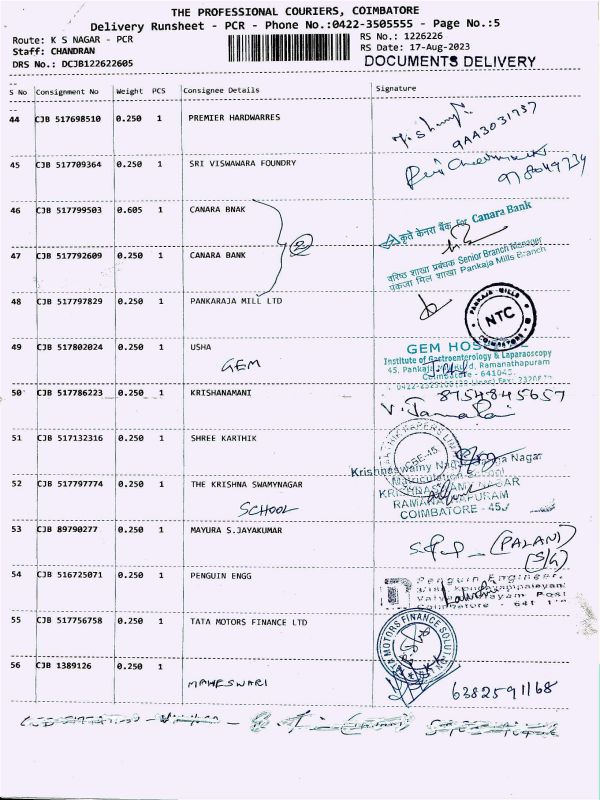 THE PROFESSIONAL COURIERS, COIMBATORE
Delivery Runsheet - PCR - Phone No.:0422-3505555 - Page No.:5
Route: K S NAGAR - PCR
RS No.: 1226226
Staff: CHANDRAN
RS Date: 17-Aug-2023
DRS No.: DCJB122622605
DOCUMENTS DELIVERY
S No Consignment No Weight PCS Consignee Details Signature
44 CJB 517698510 0.250 1 PREMIER HARDWARRES
45 CJB 517709364 0.250 1 SRI VISWAWARA FOUNDRY
46 CJB 517799503 0.605 1 CANARA BNAK
कृते केनरा बैंक For Canara Bank
47 CJB 517792609 0.250 1 CANARA BANK
वरिष्ठ शाखा प्रबंधक Senior Branch Manager
पंकजा मिल शाखा Pankaja Mills Branch
48 CJB 517797829 0.250 1 PANKARAJA MILL LTD
PANKAJA MILLS
NTC
COIMBATORE
49 CJB 517802024 0.250 1 USHA
GEM
GEM HOSPITAL
Institute of Gastroenterology & Laparoscopy
45, Pankaja Mill Road, Ramanathapuram
Coimbatore - 641045.
50 CJB 517786223 0.250 1 KRISHANAMANI
8754845657
51 CJB 517132316 0.250 1 SHREE KARTHIK
PAPERS LIMITED
CBE-45
Krishnaswamy Nagar
Matriculation School
52 CJB 517797774 0.250 1 THE KRISHNA SWAMYNAGAR
SCHOOL
KRISHNASWAMY NAGAR
RAMANATHAPURAM
COIMBATORE - 45
53 CJB 89790277 0.250 1 MAYURA S.JAYAKUMAR
(PALANI)
(S/G)
54 CJB 516725071 0.250 1 PENGUIN ENGG
Penguin Engineer,
55 CJB 517756758 0.250 1 TATA MOTORS FINANCE LTD
TATA MOTORS FINANCE SOLUTION
56 CJB 1389126 0.250 1
MAHESWARI
6382591168